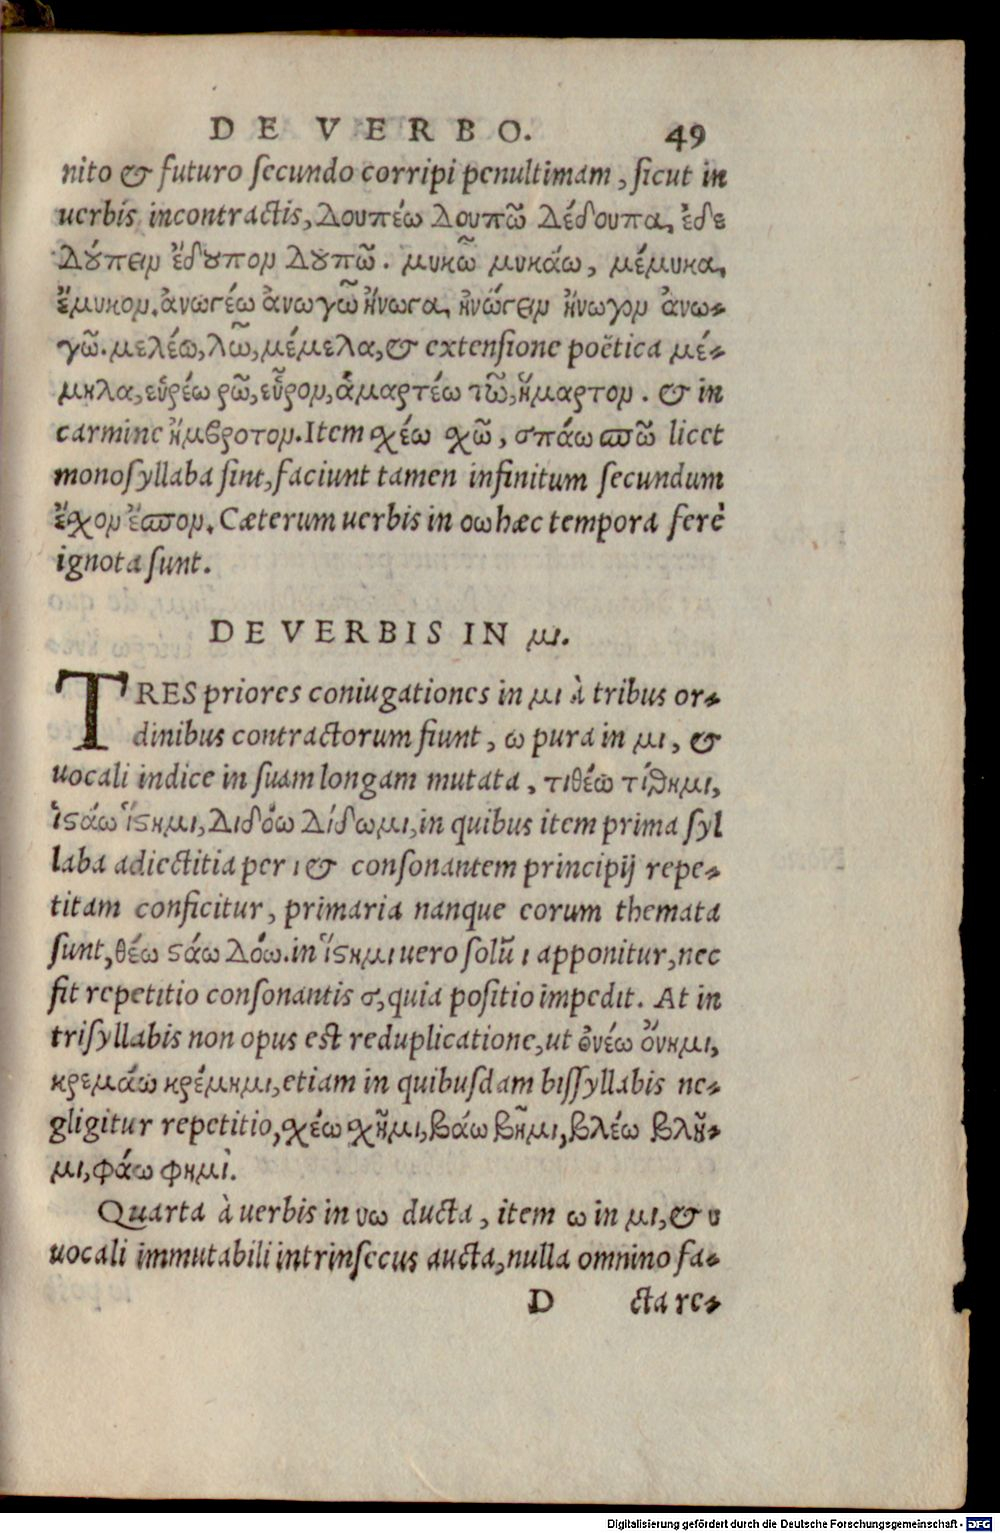 DE VERBO. 49
nito & futuro secundo corripi penultimam, sicut in
uerbis incontractis, δουπέω δουπῶ δέδουπα, ἐδε
δούπειν ἔδουπον δουπῶ. μυκῶ μυκάω, μέμυκα,
ἔμυκον. ἀνωγέω ἀνωγῶ ἤνωγα, ἠνώγειν ἤνωγον ἀνω-
γῶ. μελέω, λῶ, μέμελα, & extensione poëtica μέ-
μηλα, εὑρέω ρῶ, εὗρον, ἁμαρτέω τῶ, ἥμαρτον. & in
carmine ἤμβροτον. Item χέω χῶ, σπάω σπῶ licet
monosyllaba sint, faciunt tamen infinitum secundum
ἔχον ἔσπον. Cæterum uerbis in οω hæc tempora ferè
ignota sunt.
DE VERBIS IN μι.
TRES priores coniugationes in μι à tribus or-
dinibus contractorum fiunt, ω pura in μι, &
uocali indice in suam longam mutata, τιθέω τίθημι,
ἱστάω ἵστημι, διδόω δίδωμι, in quibus item prima syl
laba adiectitia per ι & consonantem principij repe-
titam conficitur, primaria nanque eorum themata
sunt, θέω στάω δόω. in ἵστημι uero solũ ι apponitur, nec
fit repetitio consonantis σ, quia positio impedit. At in
trisyllabis non opus est reduplicatione, ut ὀνέω ὄνημι,
κρεμάω κρέμημι, etiam in quibusdam bissyllabis ne-
gligitur repetitio, χέω χῆμι, βάω βῆμι, βλέω βλῆ-
μι, φάω φημὶ.
Quarta à uerbis in υω ducta, item ω in μι, & υ
uocali immutabili intrinsecus aucta, nulla omnino fa-
D cta re-
Digitalisierung gefördert durch die Deutsche Forschungsgemeinschaft - DFG